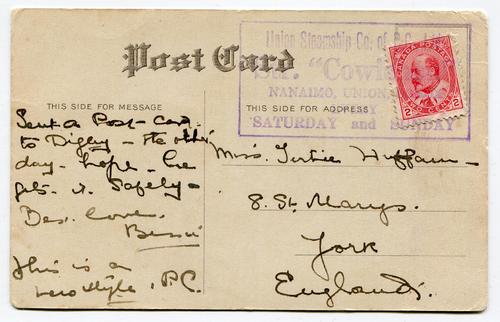 Union Steamship Co. of B.C.
Str. "Cowi
NANAIMO, UNION
SATURDAY and SUNDAY
CANADA POSTAGE
2 CENTS 2
Post Card
THIS SIDE FOR MESSAGE
Sent a Post-Card
to Digby - the other
day - hope - he
gets it safely -
Best love.
Bessie
This is a
new style, P.C.
THIS SIDE FOR ADDRESS
Miss. Tertie
8. St. Marys.
York
England.